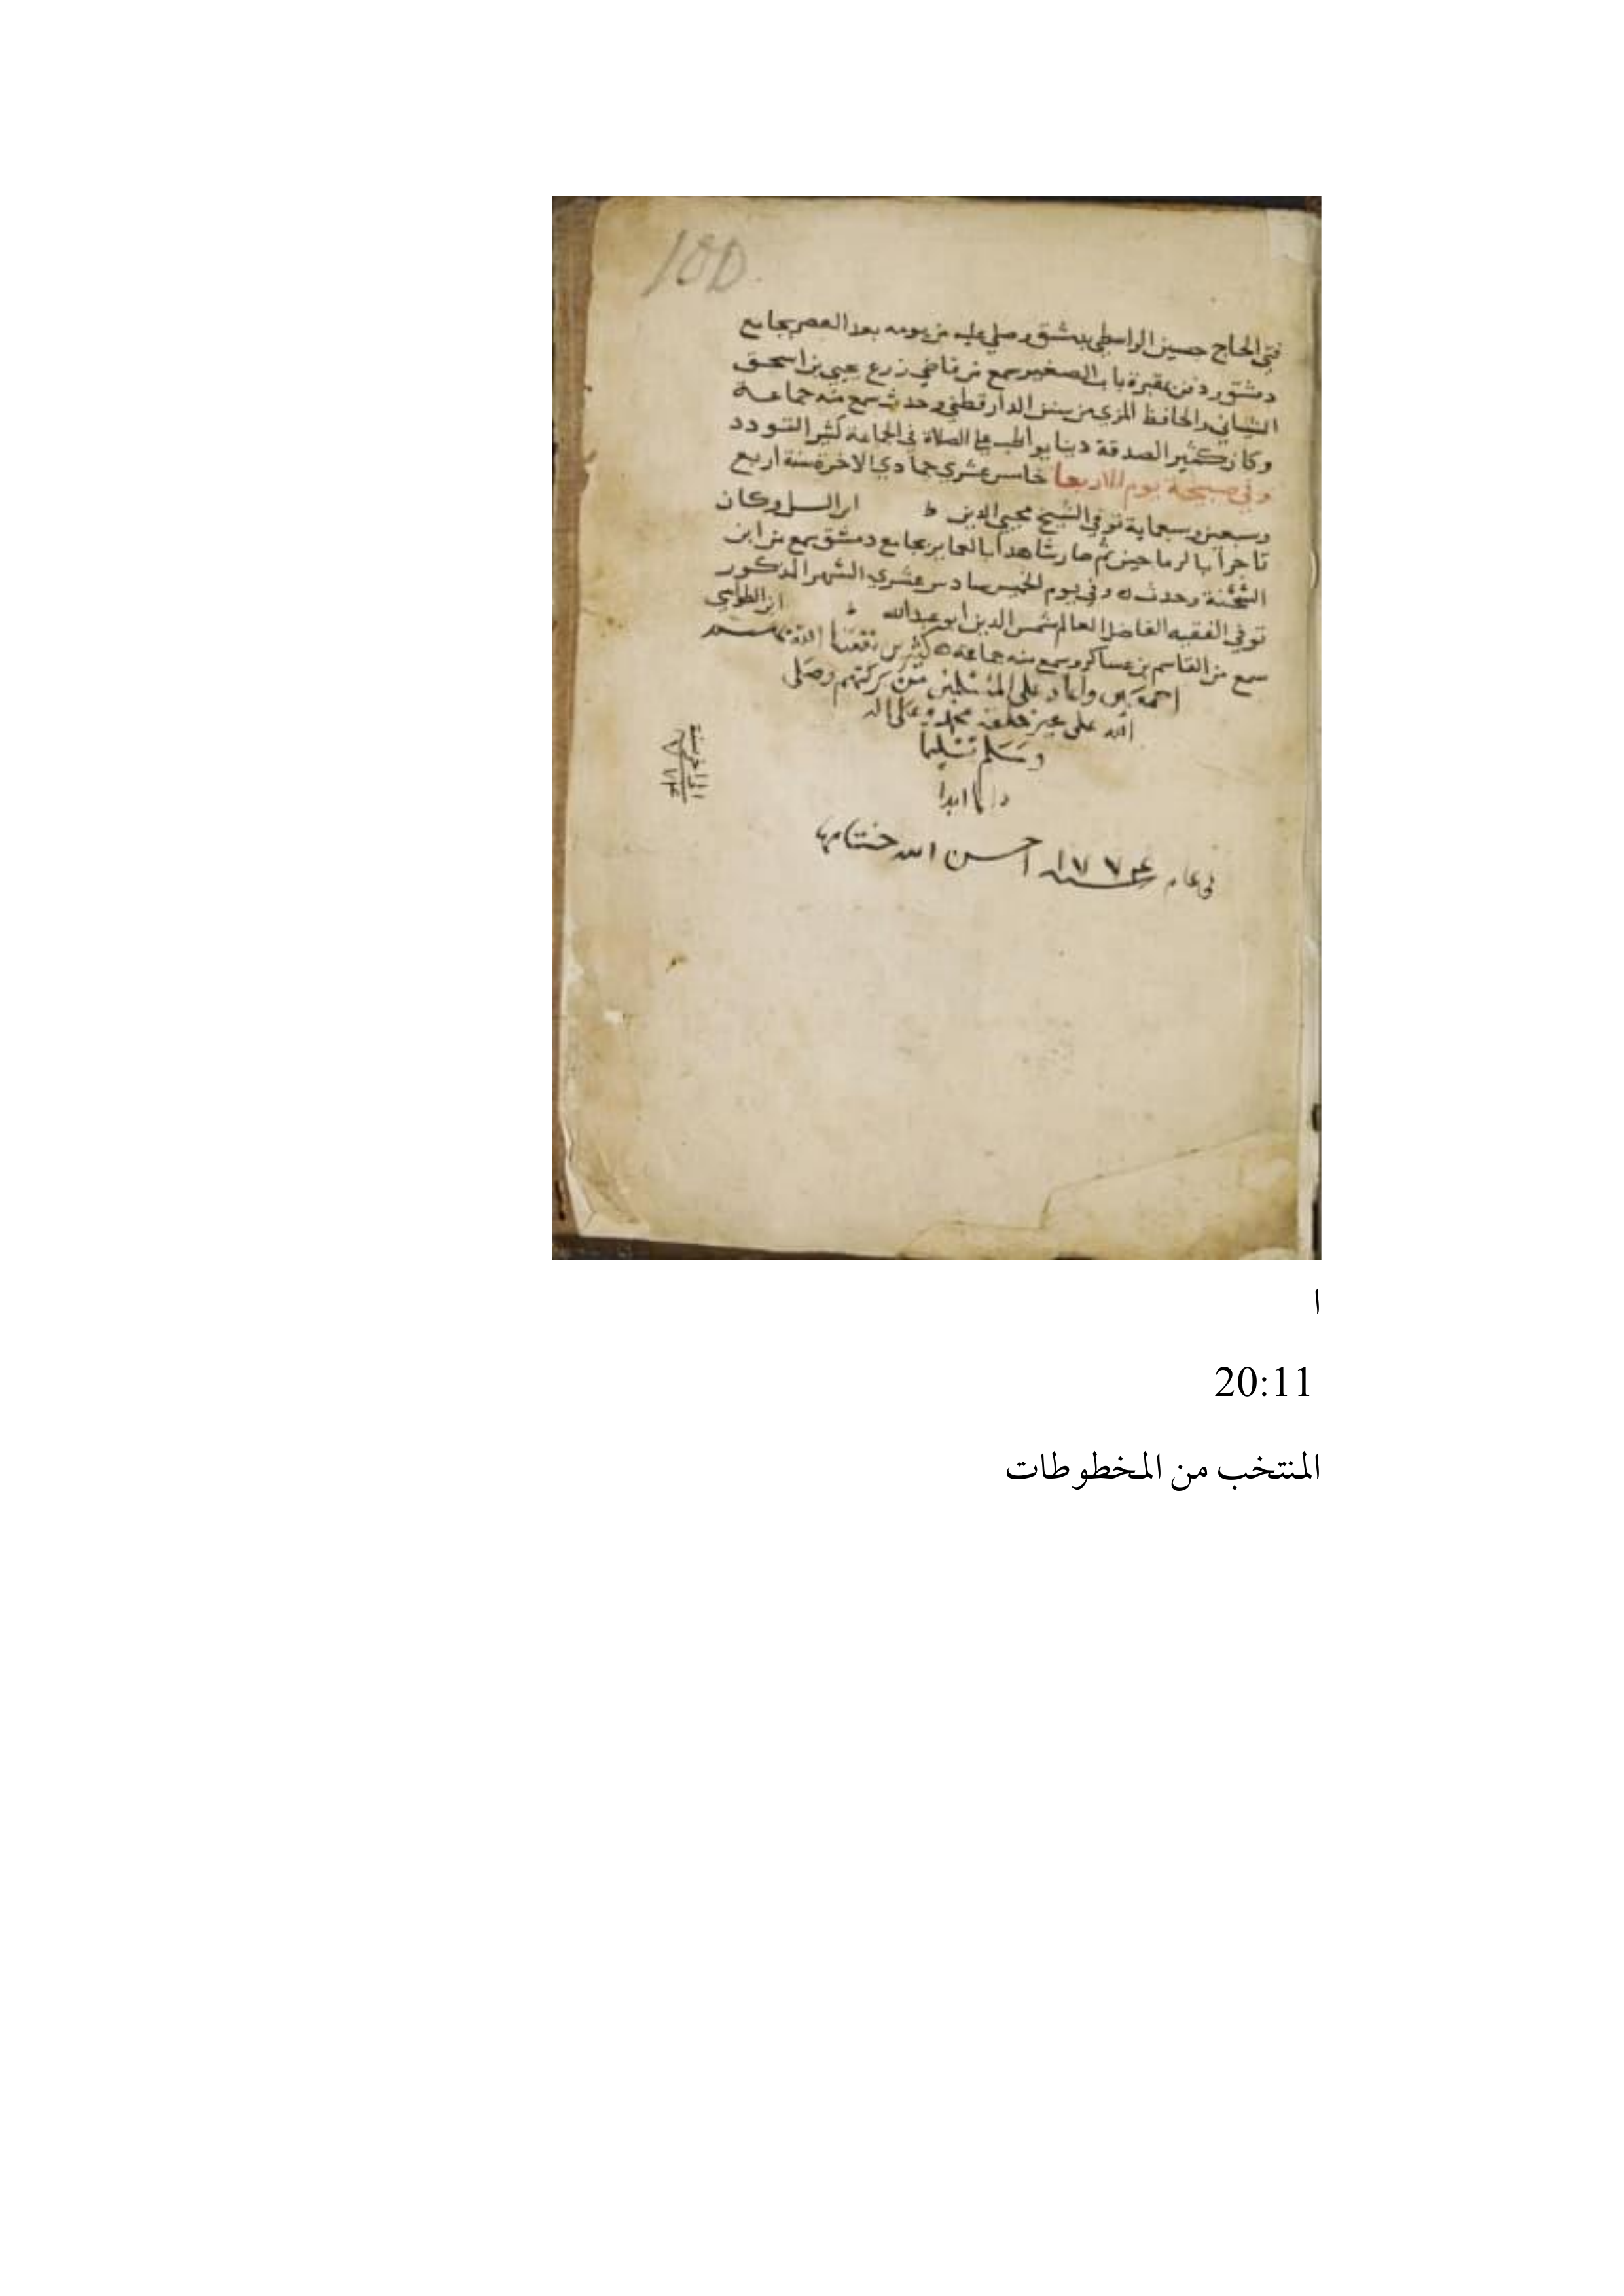 180
فتى الحاج حسين الواسطي بدمشق وصلي عليه من يومه بعد العصر بجامع
دمشق ودفن بمقبرة باب الصغير سمع من قاضي زرع يحيى بن اسحق
الشيباني والحافظ المزي من سنن الدارقطني وحدث سمع منه جماعة
وكان كثير الصدقة دينا يواظب على الصلاة في الجماعة كثير التودد
وفي صبيحة يوم الاربعا خامس عشري جمادي الاخرة سنة اربع
وسبعين وسبعماية توفي الشيخ محيي الدين وكان
تاجرا بالرماحين ثم صار شاهدا بجامع دمشق سمع من ابن
الشحنة وحدث وفي يوم الخميس سادس عشري الشهر المذكور
توفي الفقيه الفاضل العالم شمس الدين ابو عبدالله
سمع من القاسم بن عساكر وسمع منه جماعة
اجمعين واعاد على المسلمين من بركتهم وصلى
الله على خير خلقه محمد وعلى اله
وسلم تسليما
دايما ابدا
في عام سنة ٧٧٤ احسن الله ختامها
ا
20:11
المنتخب من المخطوطات